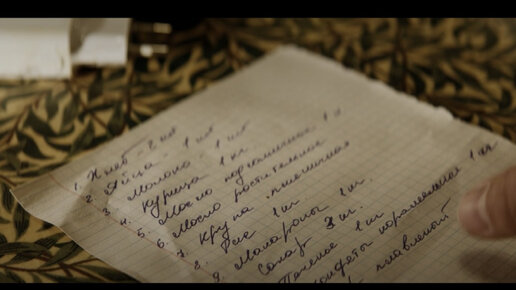 1. Хлеб - 2 шт
2. Яйца 1 шт
3. Молоко 1 шт
4. Курица 1 кг
5. Масло подсолнечное 1 л
6. Масло растительное
7. Крупа пшеничная
8. Рис 1 кг
9. Макароны 1 кг.
Сахар 3 кг.
Печенье 1 кг
Конфеты карамельные 1 кг
плавленый